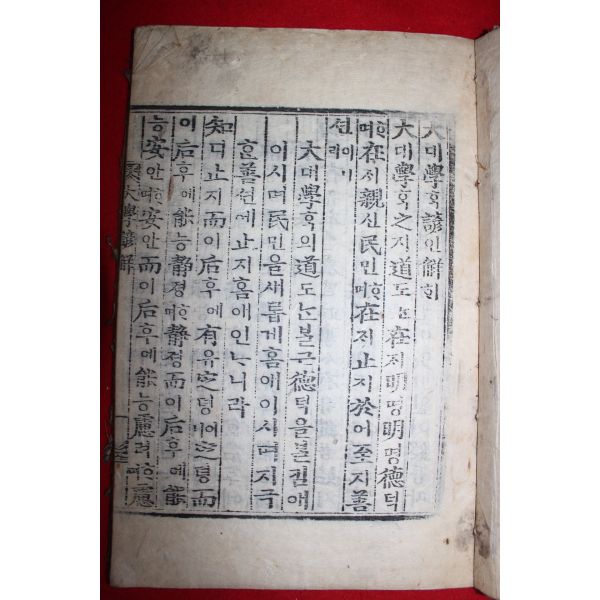 大대學ᄒᆞᆨ諺언解ᄒᆡ
大대學ᄒᆞᆨ之지道도ᄂᆞᆫ在ᄌᆡ明명明명德덕
ᄒᆞ며在ᄌᆡ親신民민ᄒᆞ며在ᄌᆡ止지於어至지善
션이니라
大대學ᄒᆞᆨ의道도ᄂᆞᆫ불근德덕을불킴애
이시며民민을새롭게홈애이시며지극
ᄒᆞᆫ善션에止지홈애인ᄂᆞ니라
知디止지而이后후에有유定뎡이니定뎡而
이后후에能능靜졍ᄒᆞ며靜졍而이后후에能
능安안ᄒᆞ며安안而이后후에能능慮려ᄒᆞ며慮
大學諺解